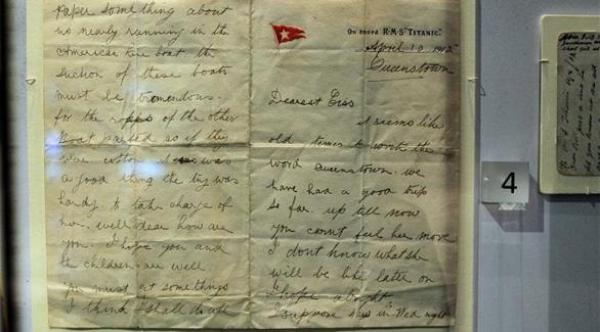 paper something about
us nearly running in the
American line boat the
suction of these boats
must be tremendous
for the ropes of the other
Boat parted as if they
were cotton it was
a good thing the tug was
handy to take charge of
her. well dear how are
you. I hope you and
the children are well
must at somethings
I think I shall do
On board R.M.S "TITANIC".
April 10 1912
Queenstown
Dearest Ciss
it seems like
old times to the
word queenstown. we
have had a good trip
so far. up till now
you can't feel her move
I dont know what she
will be like later on
I hope alright
I suppose
4